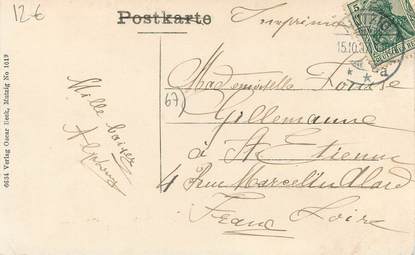 126
Postkarte
Imprimé
5
MUTZIG
15.10.
a
Mademoiselle
67
Gillemanne
à St Etienne
4 Rue Marcellin Alard
Franc Loire
Mille baiser
Alphons
6634 Verlag Oscar Beck, Mutzig No 1619